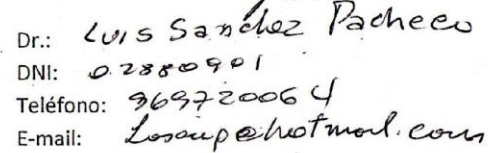 Dr.: Luis Sanchez Pacheco
DNI: 02880901
Teléfono: 969720064
E-mail: Losaup@hotmail.com